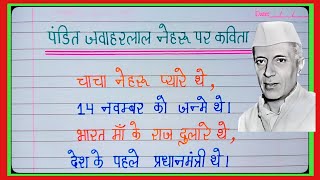 पंडित जवाहरलाल नेहरू पर कविता
चाचा नेहरू प्यारे थे,
14 नवम्बर को जन्मे थे।
भारत माँ के राज दुलारे थे,
देश के पहले प्रधानमंत्री थे।